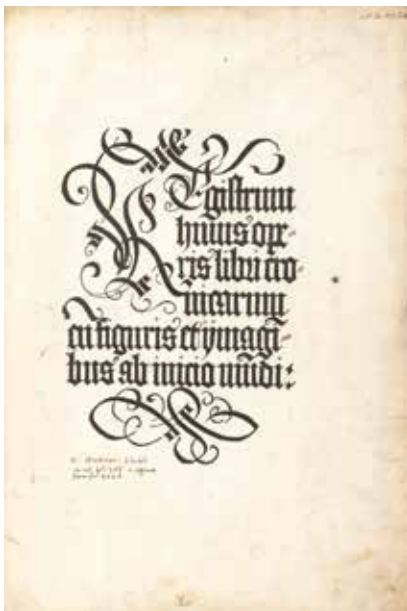 REgistrum
huius ope-
ris libri cro-
nicarum
cū figuris et ymagi-
bus ab inicio mūdi: